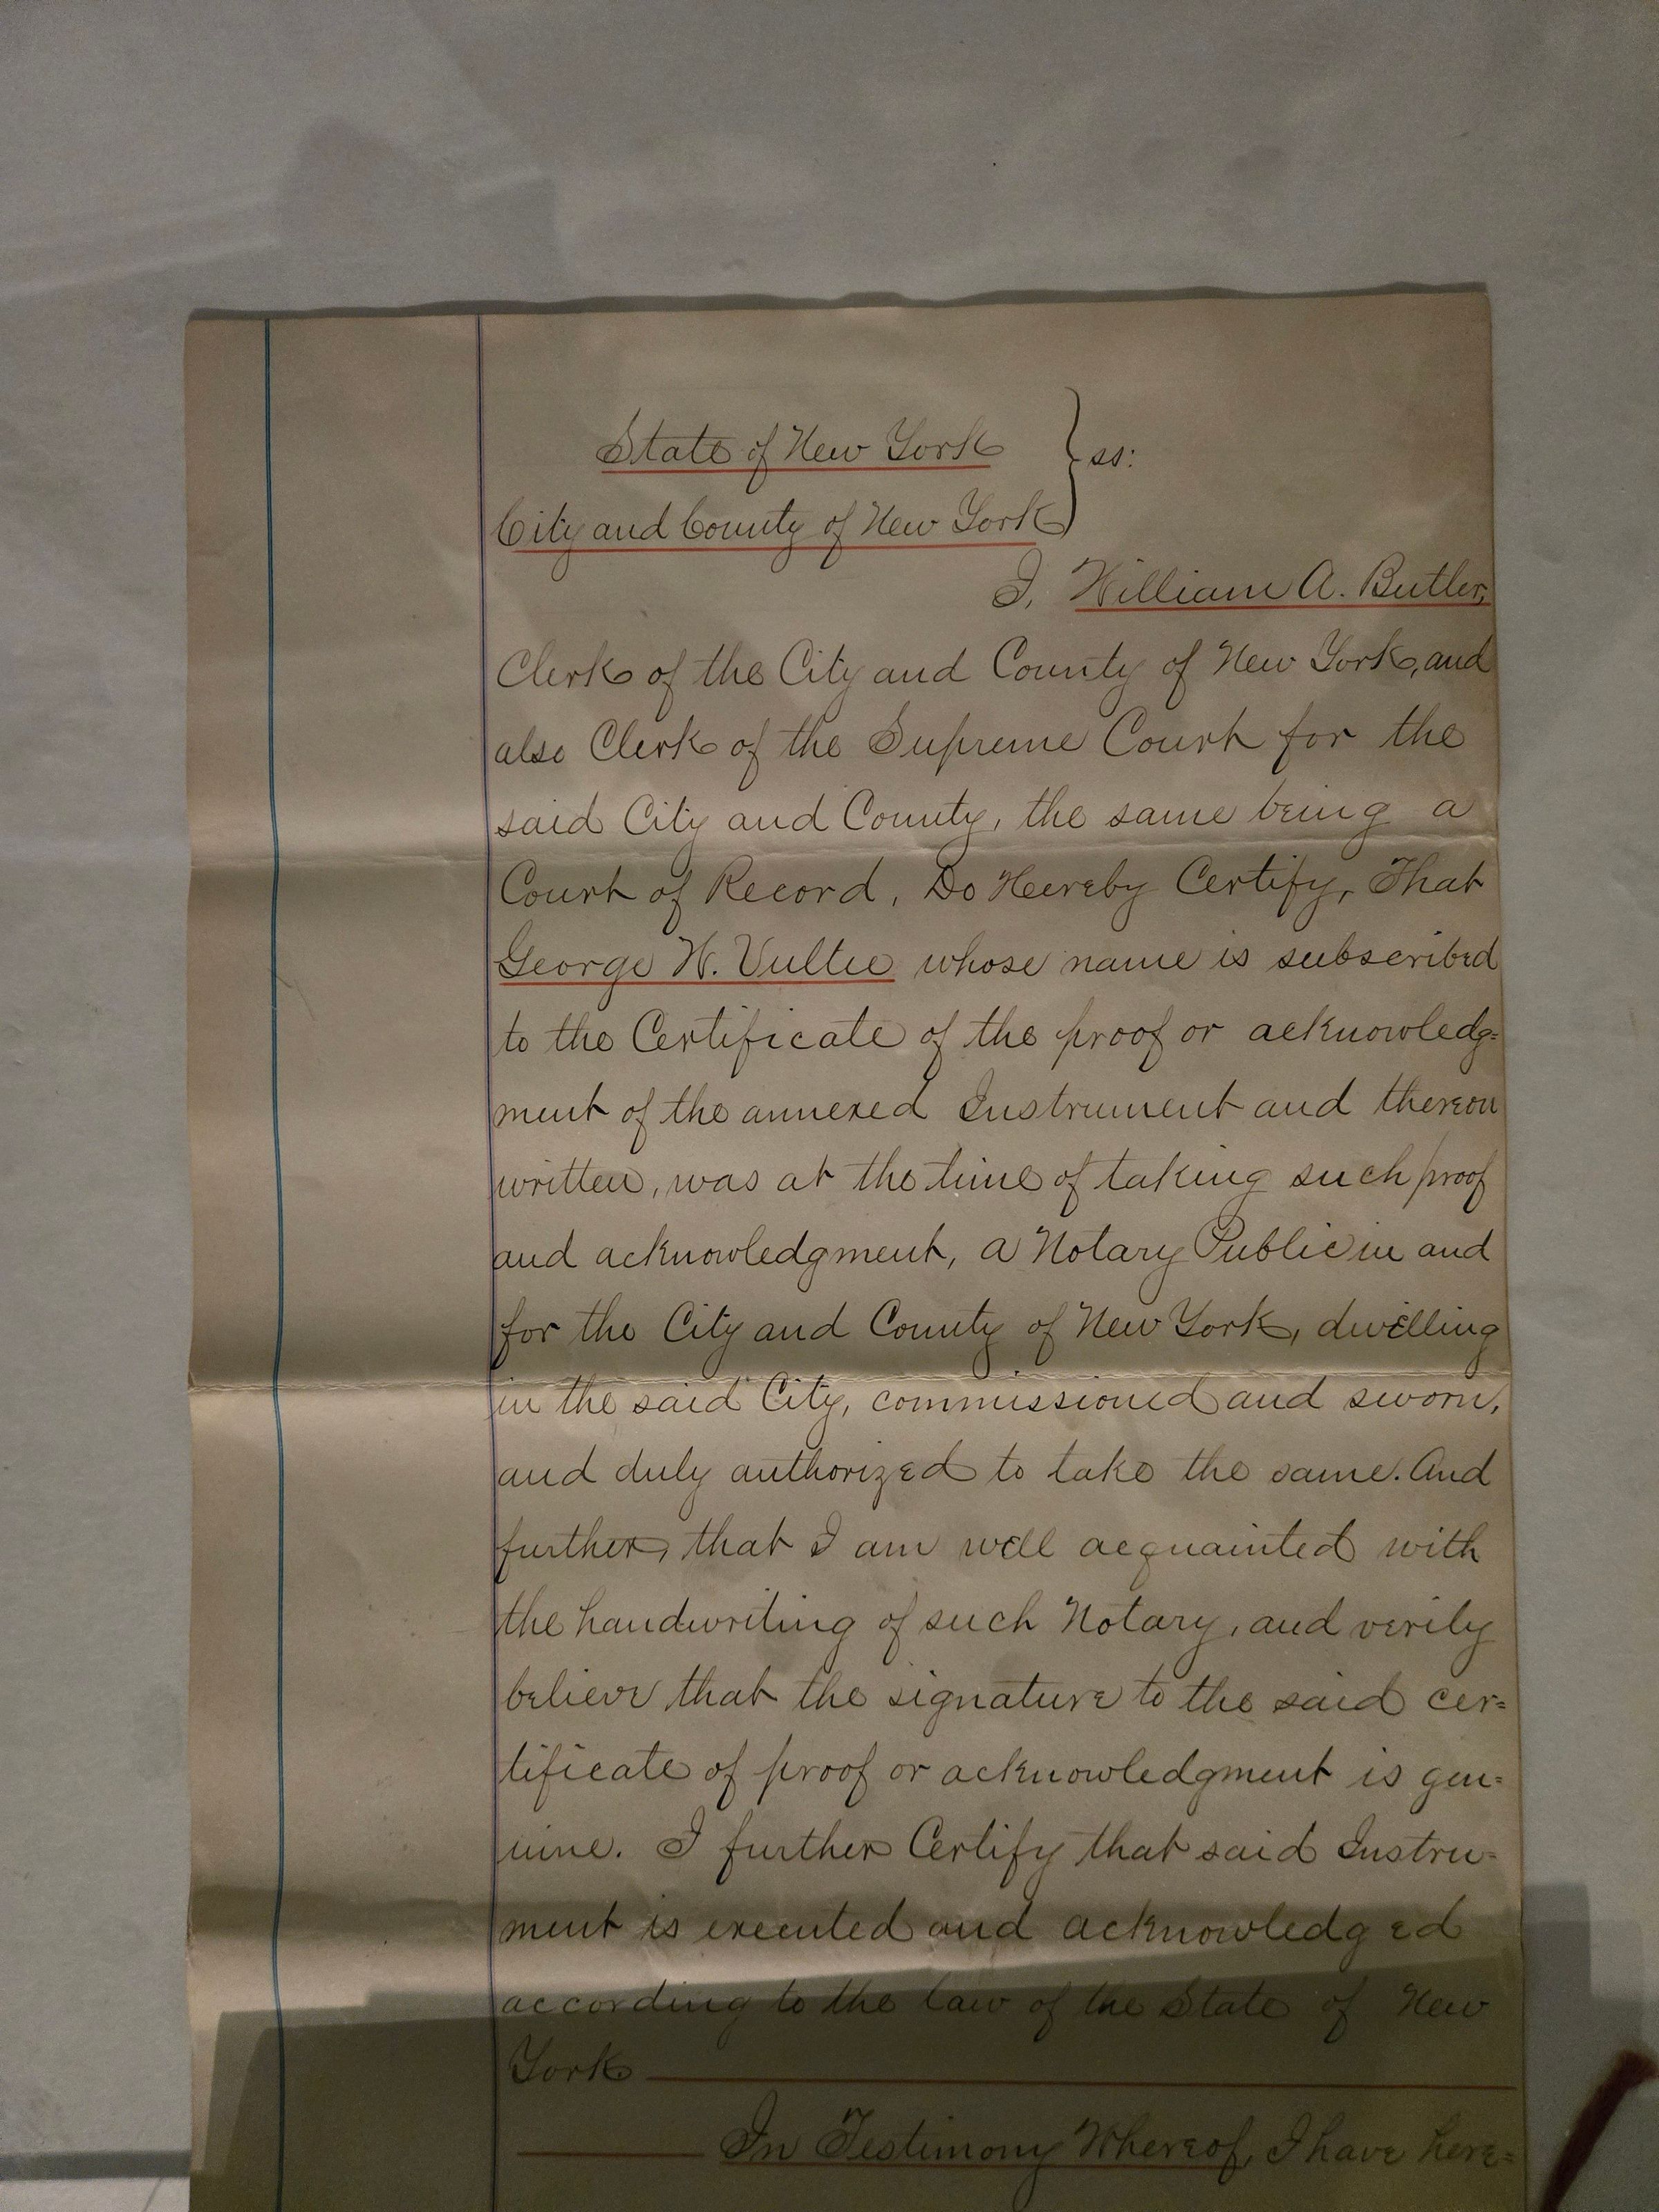 State of New York } ss:
City and County of New York
I, William A. Butler,
Clerk of the City and County of New York, and
also Clerk of the Supreme Court for the
said City and County, the same being a
Court of Record, Do Hereby Certify, That
George W. Vultee whose name is subscribed
to the Certificate of the proof or acknowledg=
ment of the annexed Instrument and thereon
written, was at the time of taking such proof
and acknowledgment, a Notary Public in and
for the City and County of New York, dwelling
in the said City, commissioned and sworn,
and duly authorized to take the same. And
further, that I am well acquainted with
the handwriting of such Notary, and verily
believe that the signature to the said cer=
tificate of proof or acknowledgment is gen=
uine. I further Certify that said Instru=
ment is executed and acknowledged
according to the law of the State of New
York
In Testimony Whereof, I have here=